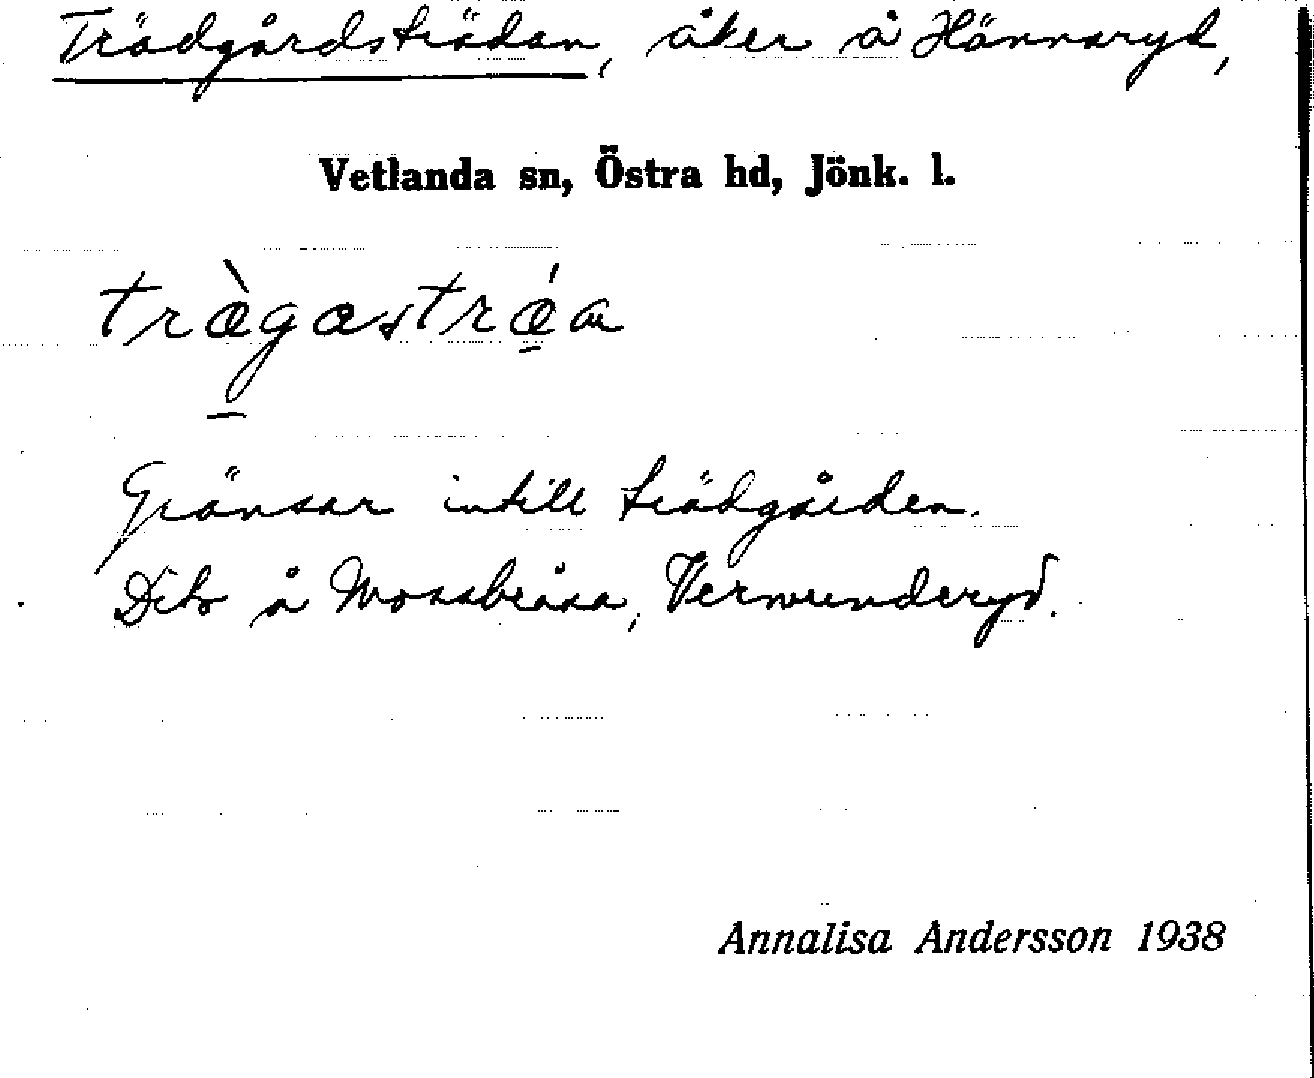 Trädgårdsträdan, åker å Hännaryd,
Vetlanda sn, Östra hd, Jönk. l.
træ̀gastrǽa
Gränsar intill trädgården.
Dito å Mossbråna, Vermunderyd.
Annalisa Andersson 1938